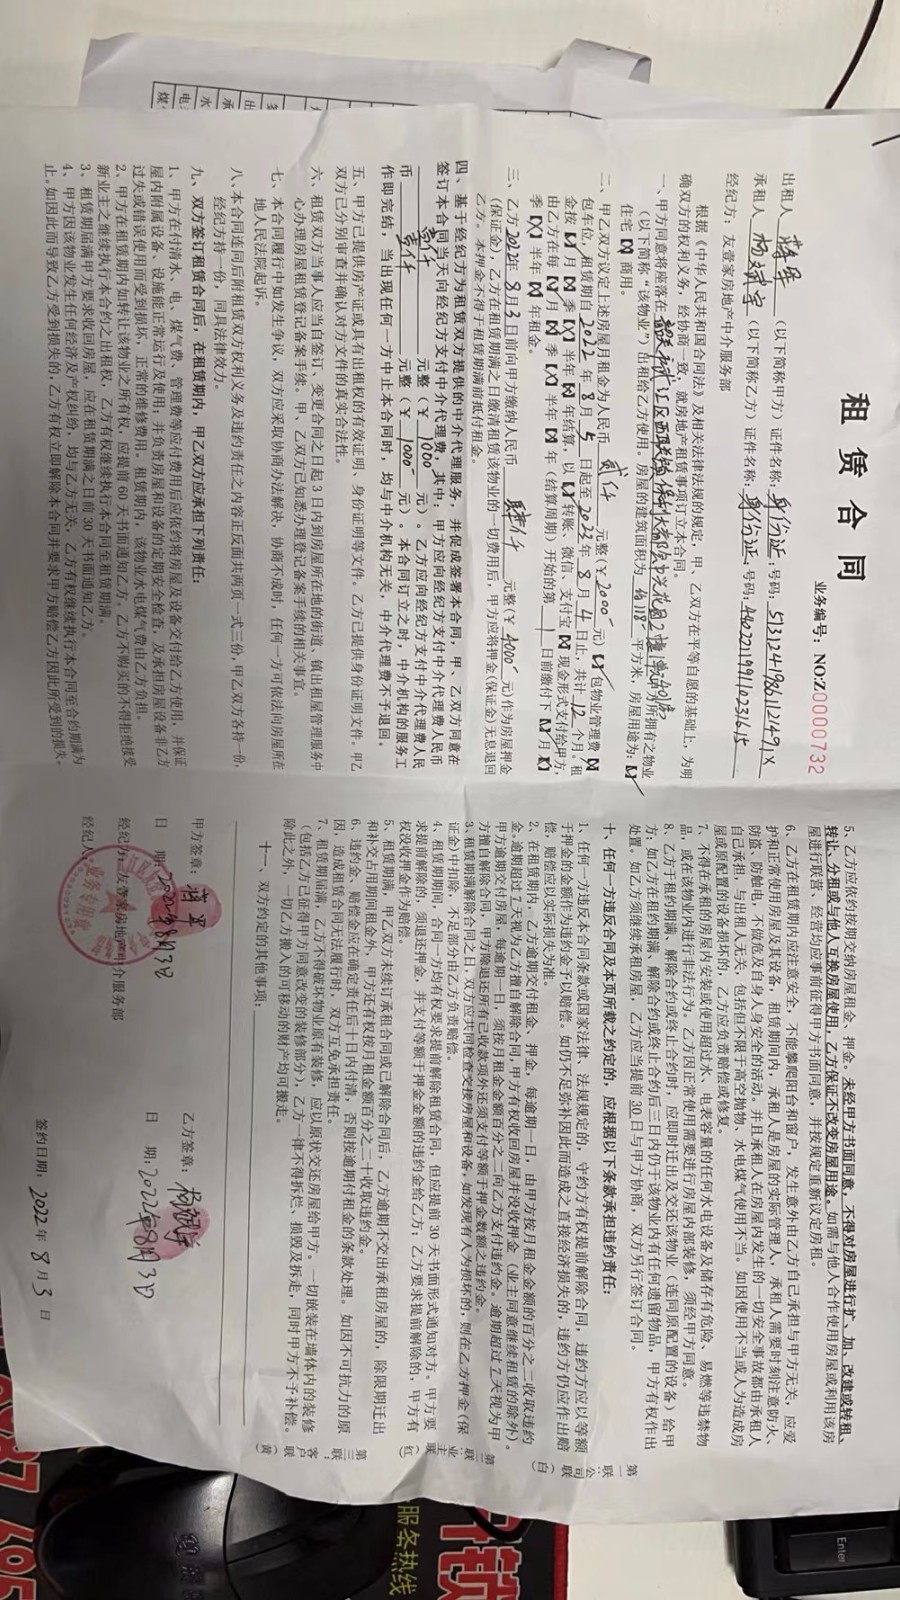 租赁合同
业务编号：NO:Z0000732
出租人 蒋军 （以下简称甲方）证件名称：身份证 号码：
承租人 （以下简称乙方）证件名称：身份证 号码：
经纪方：友登家房地产中介服务部
根据《中华人民共和国合同法》及相关法律法规的规定，甲、乙双方在平等自愿的基础上，为明
确双方的权利义务，经协商一致，就房地产租赁事项订立本合同。
一、甲方同意将座落在 所拥有之物业
（以下简称“该物业”）出租给乙方使用。房屋的建筑面积为 约118 平方米，房屋用途为：
住宅 商用。
二、甲乙双方议定上述房屋月租金为人民币 贰仟 元整(￥2000 元)， 包物业管理费
包车位，租赁期自 2022 年 8 月 5 日起至 2023 年 8 月 4 日止，共计 12 个月。租
金按 月 季 半年 年结算，以 转账、微信、支付宝 现金形式支付给甲方，
由乙方在每 月 季 半年 年（结算周期）开始的第 1 日前缴付下 月
季 半年 年租金。
三、乙方 2022年 8 月 3 日前向甲方缴纳人民币 肆仟 元整(￥4000 元)作为房屋押金
(保证金)，乙方在租赁期满之日缴清租赁该物业的一切费用后，甲方应将押金(保证金)无息退回
乙方。本押金不得于租赁期满前抵付租金。
四、基于经纪方为租赁双方提供的中介代理服务，并促成签署本合同，甲、乙双方同意在
签订本合同当天向经纪方支付中介代理费，其中：甲方应向经纪方支付中介代理费人民币
壹仟 元整（￥1000 元）。乙方应向经纪方支付中介代理费人民
币 壹仟 元整（￥1000 元）。本合同订立之时，中介机构的服务工
作即完结，当出现任何一方中止本合同时，均与中介机构无关，中介代理费不予退回。
五、甲方已提供房产证或具有出租权的有效证明、身份证明等文件。乙方已提供身份证明文件。甲乙
双方已分别审查并确认对方文件的真实合法性。
六、租赁双方当事人应当自签订、变更合同之日起3日内到房屋所在地的街道、镇出租屋管理服务中
心办理房屋租赁登记备案手续。甲、乙双方已知悉办理登记备案手续的相关事宜。
七、本合同履行中如发生争议，双方应采取协商办法解决，协商不成时，任何一方可依法向房屋所在
地人民法院起诉。
八、本合同连同后附租赁双方权利义务及违约责任之内容正反面共两页一式三份，甲乙双方各持一份，
经纪方持一份，同具法律效力。
九、双方签订租赁合同后，在租赁期内，甲乙双方应承担下列责任：
1、甲方在付清水、电、煤气费、管理费等应付费用后应依约将房屋及设备交付给乙方使用，并保证
屋内附属设备、设施能正常运行及使用，并负责房屋和设备的定期安全检查，及承担房屋设备非乙方
过失或错误使用而受到损坏，正常的维修费用。租赁期内，该物业水电煤气费由乙方负担。
2、甲方在租赁期内如转让该物业之所有权，应提前60天书面通知乙方。乙方不购买的不得拒绝接受
新业主之继续执行本合约之出租权，乙方有权继续执行本合同至租赁期满。
3、租赁期届满甲方要求收回房屋，应在租赁期满之日前30天书面通知乙方。
4、甲方因该物业发生任何经济及产权纠纷，均与乙方无关，乙方有权继续执行本合同至合约期满为
止。如因此而导致乙方受到损失的，乙方有权立即解除本合同并要求甲方赔偿乙方因此所受到的损失。
5、乙方应依约按期交纳房屋租金、押金。未经甲方书面同意，不得对房屋进行扩、加、改建或转租、
转让、分租或与他人互换房屋使用，乙方保证不改变房屋用途。如需与他人合作使用房屋或利用该房
屋进行联营、经营均应事前征得甲方书面同意，并按规定重新议定房租。
6、乙方在租赁期内应注意安全，不能攀爬阳台和窗户，发生意外由乙方自己承担与甲方无关，应爱
护和正常使用房屋及其设备，租赁期间内，承租人是房屋的实际管理人，承租人需要时刻注意防火、
防盗、防触电，不做危及自身人身安全的活动，并且承租人在房屋内发生的一切安全事故都由承租人
自己承担，与出租人无关，包括但不限于高空抛物、水电煤气使用不当。如因使用不当或人为造成房
屋或原配置的设备损坏的，乙方应负责赔偿或修复。
7、不得在承租的房屋内安装或使用超过水、电表容量的任何水电设备及储存有危险、易燃等违禁物
品，或在该物业内进行非法行为，乙方因正常使用需要进行房屋内部装修，须经甲方同意。
8、于租约期满、解除合约或终止合约时，应即时迁出及交还该物业（连同原配置的设备）给甲
方；如乙方在租约期满、解除合约或终止合约后三日内仍于该物业内有任何遗留物品，甲方有权作出
处置。如乙方须继续承租房屋，乙方应当提前30日与甲方协商，双方另行签订合同。
十、任何一方违反合同及本页所载之约定的，应根据以下条款承担违约责任：
1、任何一方违反本合同条款或国家法律、法规规定的，守约方有权提前解除合同，违约方应以等额
于押金的金额作为违约金予以赔偿。如仍不足弥补因此而造成之直接经济损失的，违约方仍应作出赔
偿，赔偿应以实际损失为准。
2、在租赁期内，乙方逾期交付租金、押金，每逾期一日，由甲方按月租金金额的百分之二收取违约
金。逾期超过7天视为乙方擅自解除合同，甲方有权收回房屋并没收押金（业主同意继续租赁的除外）。
甲方逾期交付房屋，每逾期一日，须按月租金金额百分之二向乙方支付违约金。逾期超过7天视为甲
方擅自解除合同，甲方除退还所有已收款项外还须支付等额于押金数额之违约金。
3、租赁期满或解除合同之日，双方应共同检查交接房屋和设备，如发现有人为损坏的，则在乙方押金（保
证金）中扣除，不足部分由乙方负责赔偿。
4、租赁期期间，合同一方均有权要求提前解除租赁合同，但应提前30天书面形式通知对方。甲方要
求提前解除的，须退还押金，并支付等额于押金金额的违约金给乙方；乙方要求提前解除的，甲方有
权没收押金作为赔偿。
5、租赁期满，甲乙双方未续订承租合同或已解除合同后，乙方逾期不交出承租房屋的，除限期迁出
和补交占用期间租金外，甲方还有权按月租金额百分之二十收取违约金。
6、违约金、赔偿金应在确定责任后十日内付清，否则按逾期付租金的条款处理。如因不可抗力的原
因，造成租赁合同无法履行时，双方互免承担责任。
7、租赁期届满，乙方不得破坏物业原有装修，应以原状交还房屋给甲方。一切嵌装在墙体内的装修
（包括乙方已征得甲方同意改变的装修部分），乙方一律不得拆烂、损毁及拆走，同时甲方不予补偿。
除此之外，一切乙方搬入的可移动的财产均可搬走。
十一、双方约定的其他事项：
甲方签章： 乙方签章：
日 期：2022年8月3日 日 期：2022年8月3日
经纪方：友登家房地产中介服务部
经纪人：
业务专用章
签约日期：2022 年 8 月 3 日
第一联：公司（白）
第二联：业主（红）
第三联：客户（黄）
服务热线
Enter